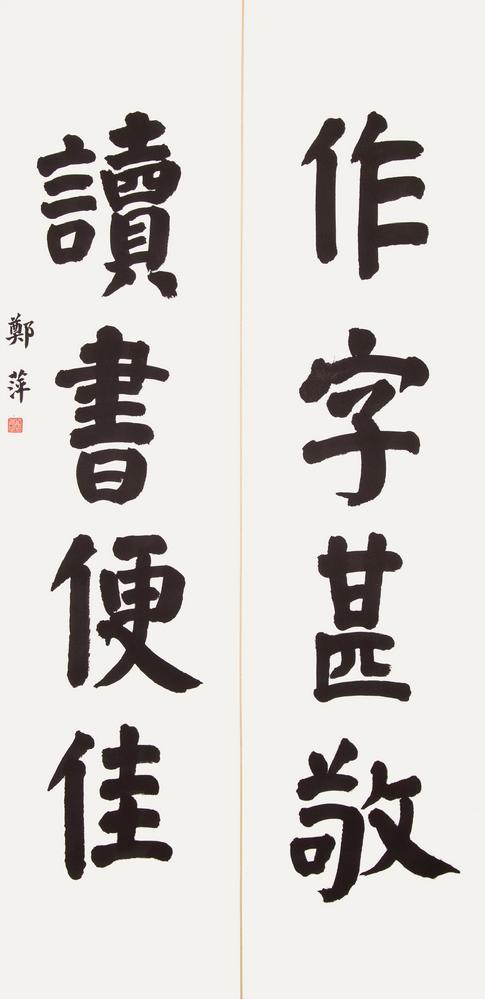 作字甚敬
讀書便佳
鄭萍